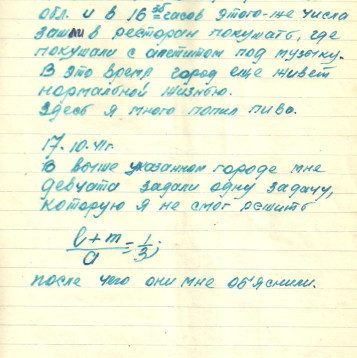 обл. и в 16 35 часов этого-же числа
зашли в ресторан покушать, где
покушали с апетитом под музыку.
В это время город еще живет
нормальной жизнью.
Здесь я много попил пива.
17.10.41г.
В выше указанном городе мне
девчата задали одну задачу,
которую я не смог решить
(l+m)/a = 1/3;
после чего они мне об'яснили.